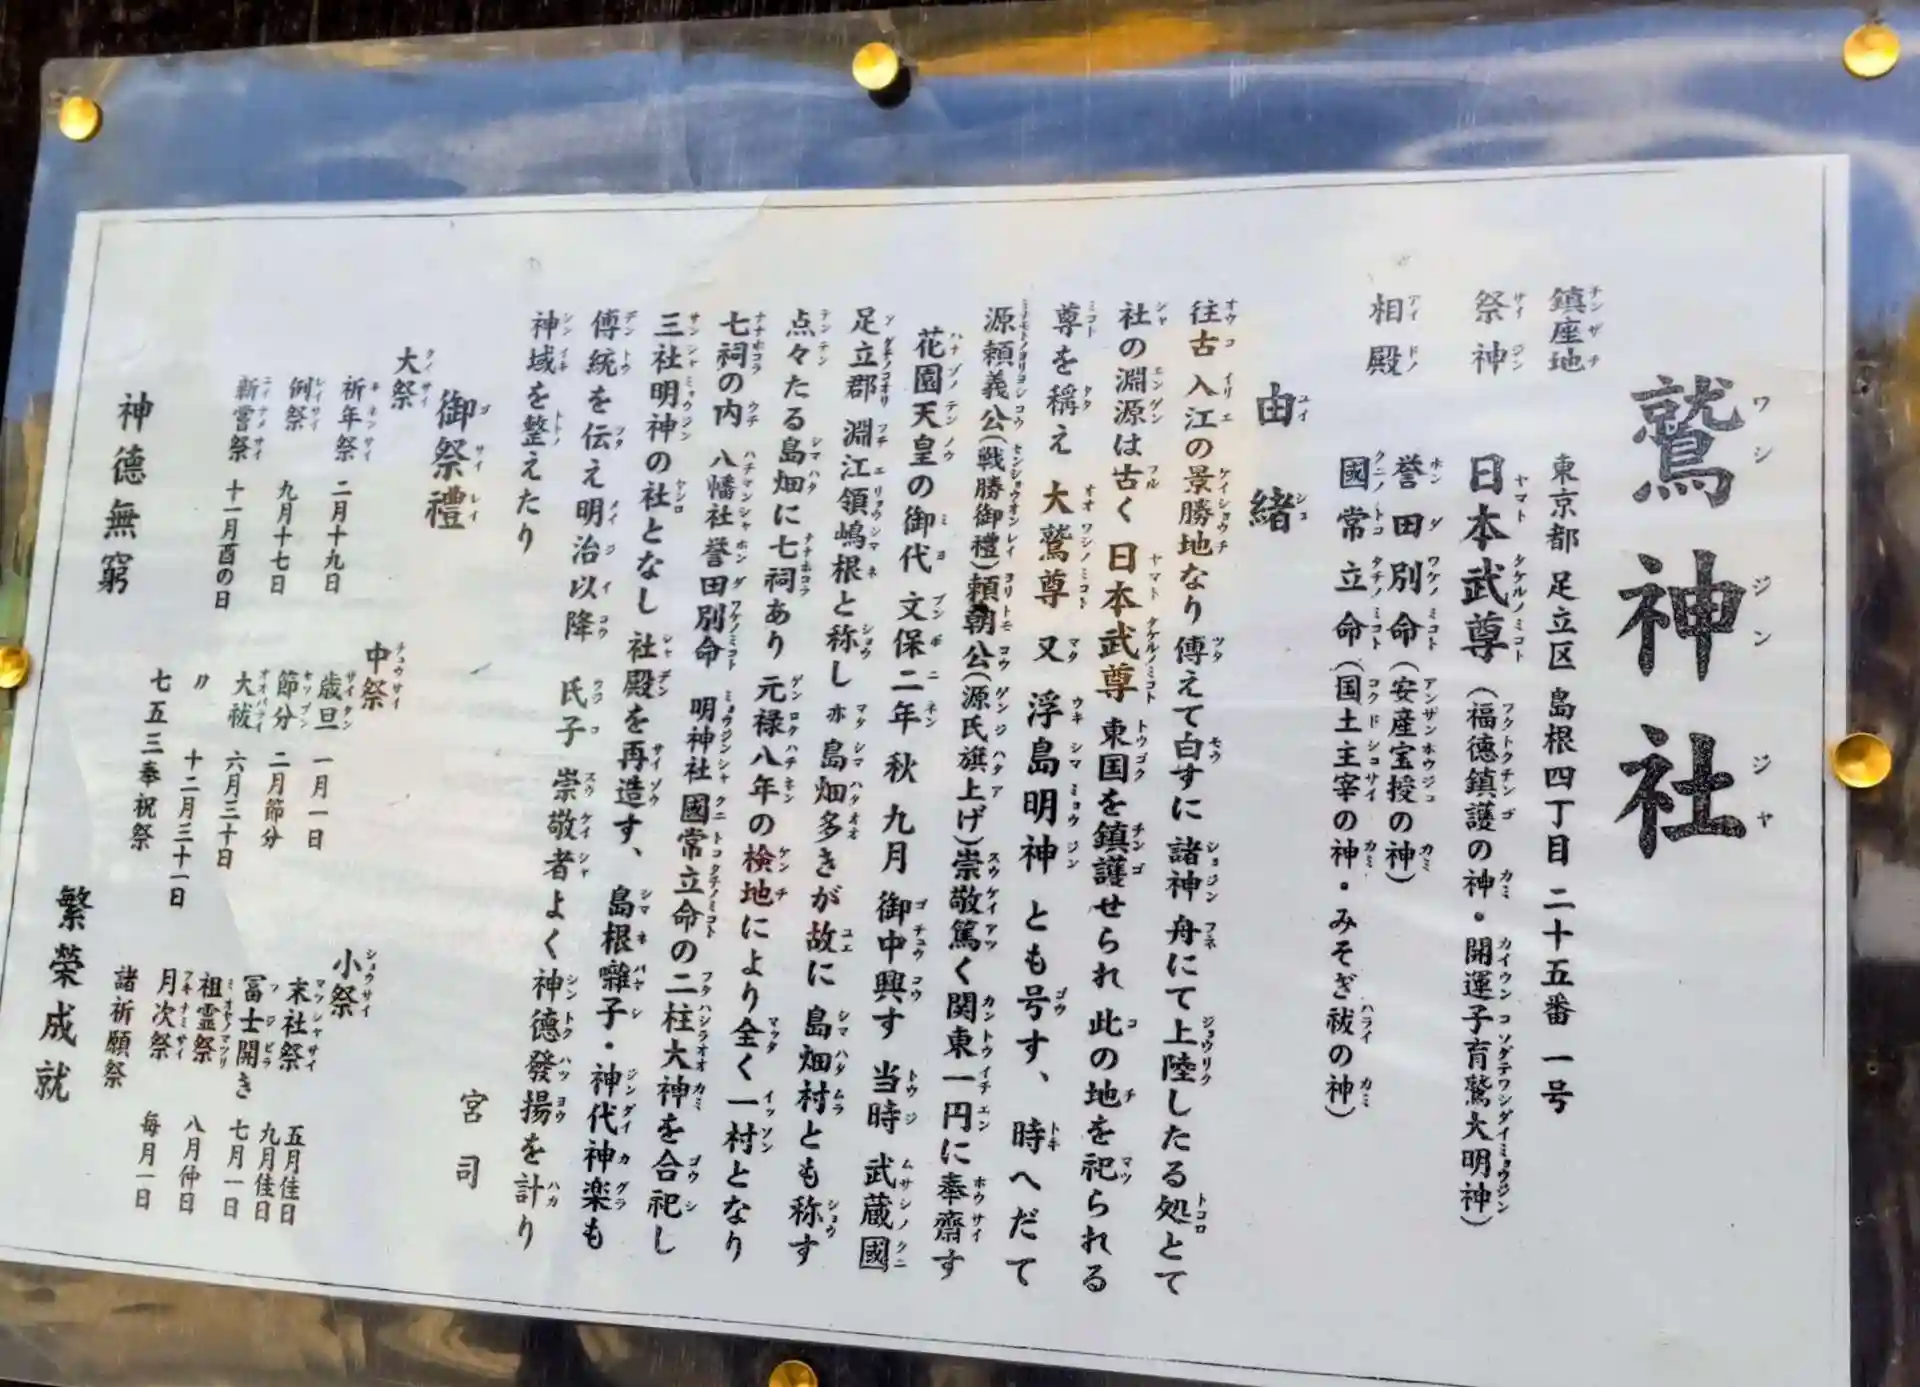 鷲神社
鎮座地 東京都 足立区 島根四丁目 二十五番 一号
祭神 日本武尊 (福徳鎮護の神・開運子育鷲大明神)
相殿 誉田別命 (安産宝授の神)
國常立命 (国土主宰の神・みそぎ祓の神)
由緒
往古 入江の景勝地なり 傳えて白すに 諸神 舟にて上陸したる処とて
社の淵源は古く 日本武尊 東国を鎮護せられ 此の地を祀られる
尊を稱え 大鷲尊 又 浮島明神 とも号す、時へだてて
源頼義公(戦勝御禮)頼朝公(源氏旗上げ)崇敬篤く関東一円に奉齋す
花園天皇の御代 文保二年 秋 九月 御中興す 当時 武蔵國
足立郡 淵江領嶋根と称し 亦 島畑多きが故に 島畑村とも称す
点々たる島畑に七祠あり 元禄八年の検地により全く一村となり
七祠の内 八幡社誉田別命 明神社國常立命の二柱大神を合祀し
三社明神の社となし 社殿を再造す、島根囃子・神代神楽も
傳統を伝え明治以降 氏子 崇敬者よく神德發揚を計り
神域を整えたり
宮司
御祭禮
大祭
祈年祭 二月十九日
例祭 九月十七日
新嘗祭 十一月酉の日
中祭
歳旦 一月一日
節分 二月節分
大祓 六月三十日
〃 十二月三十一日
七五三奉祝祭
小祭
末社祭 五月佳日
九月佳日
冨士開き 七月一日
祖霊祭 八月仲日
月次祭 毎月一日
諸祈願祭
神德無窮
繁榮成就